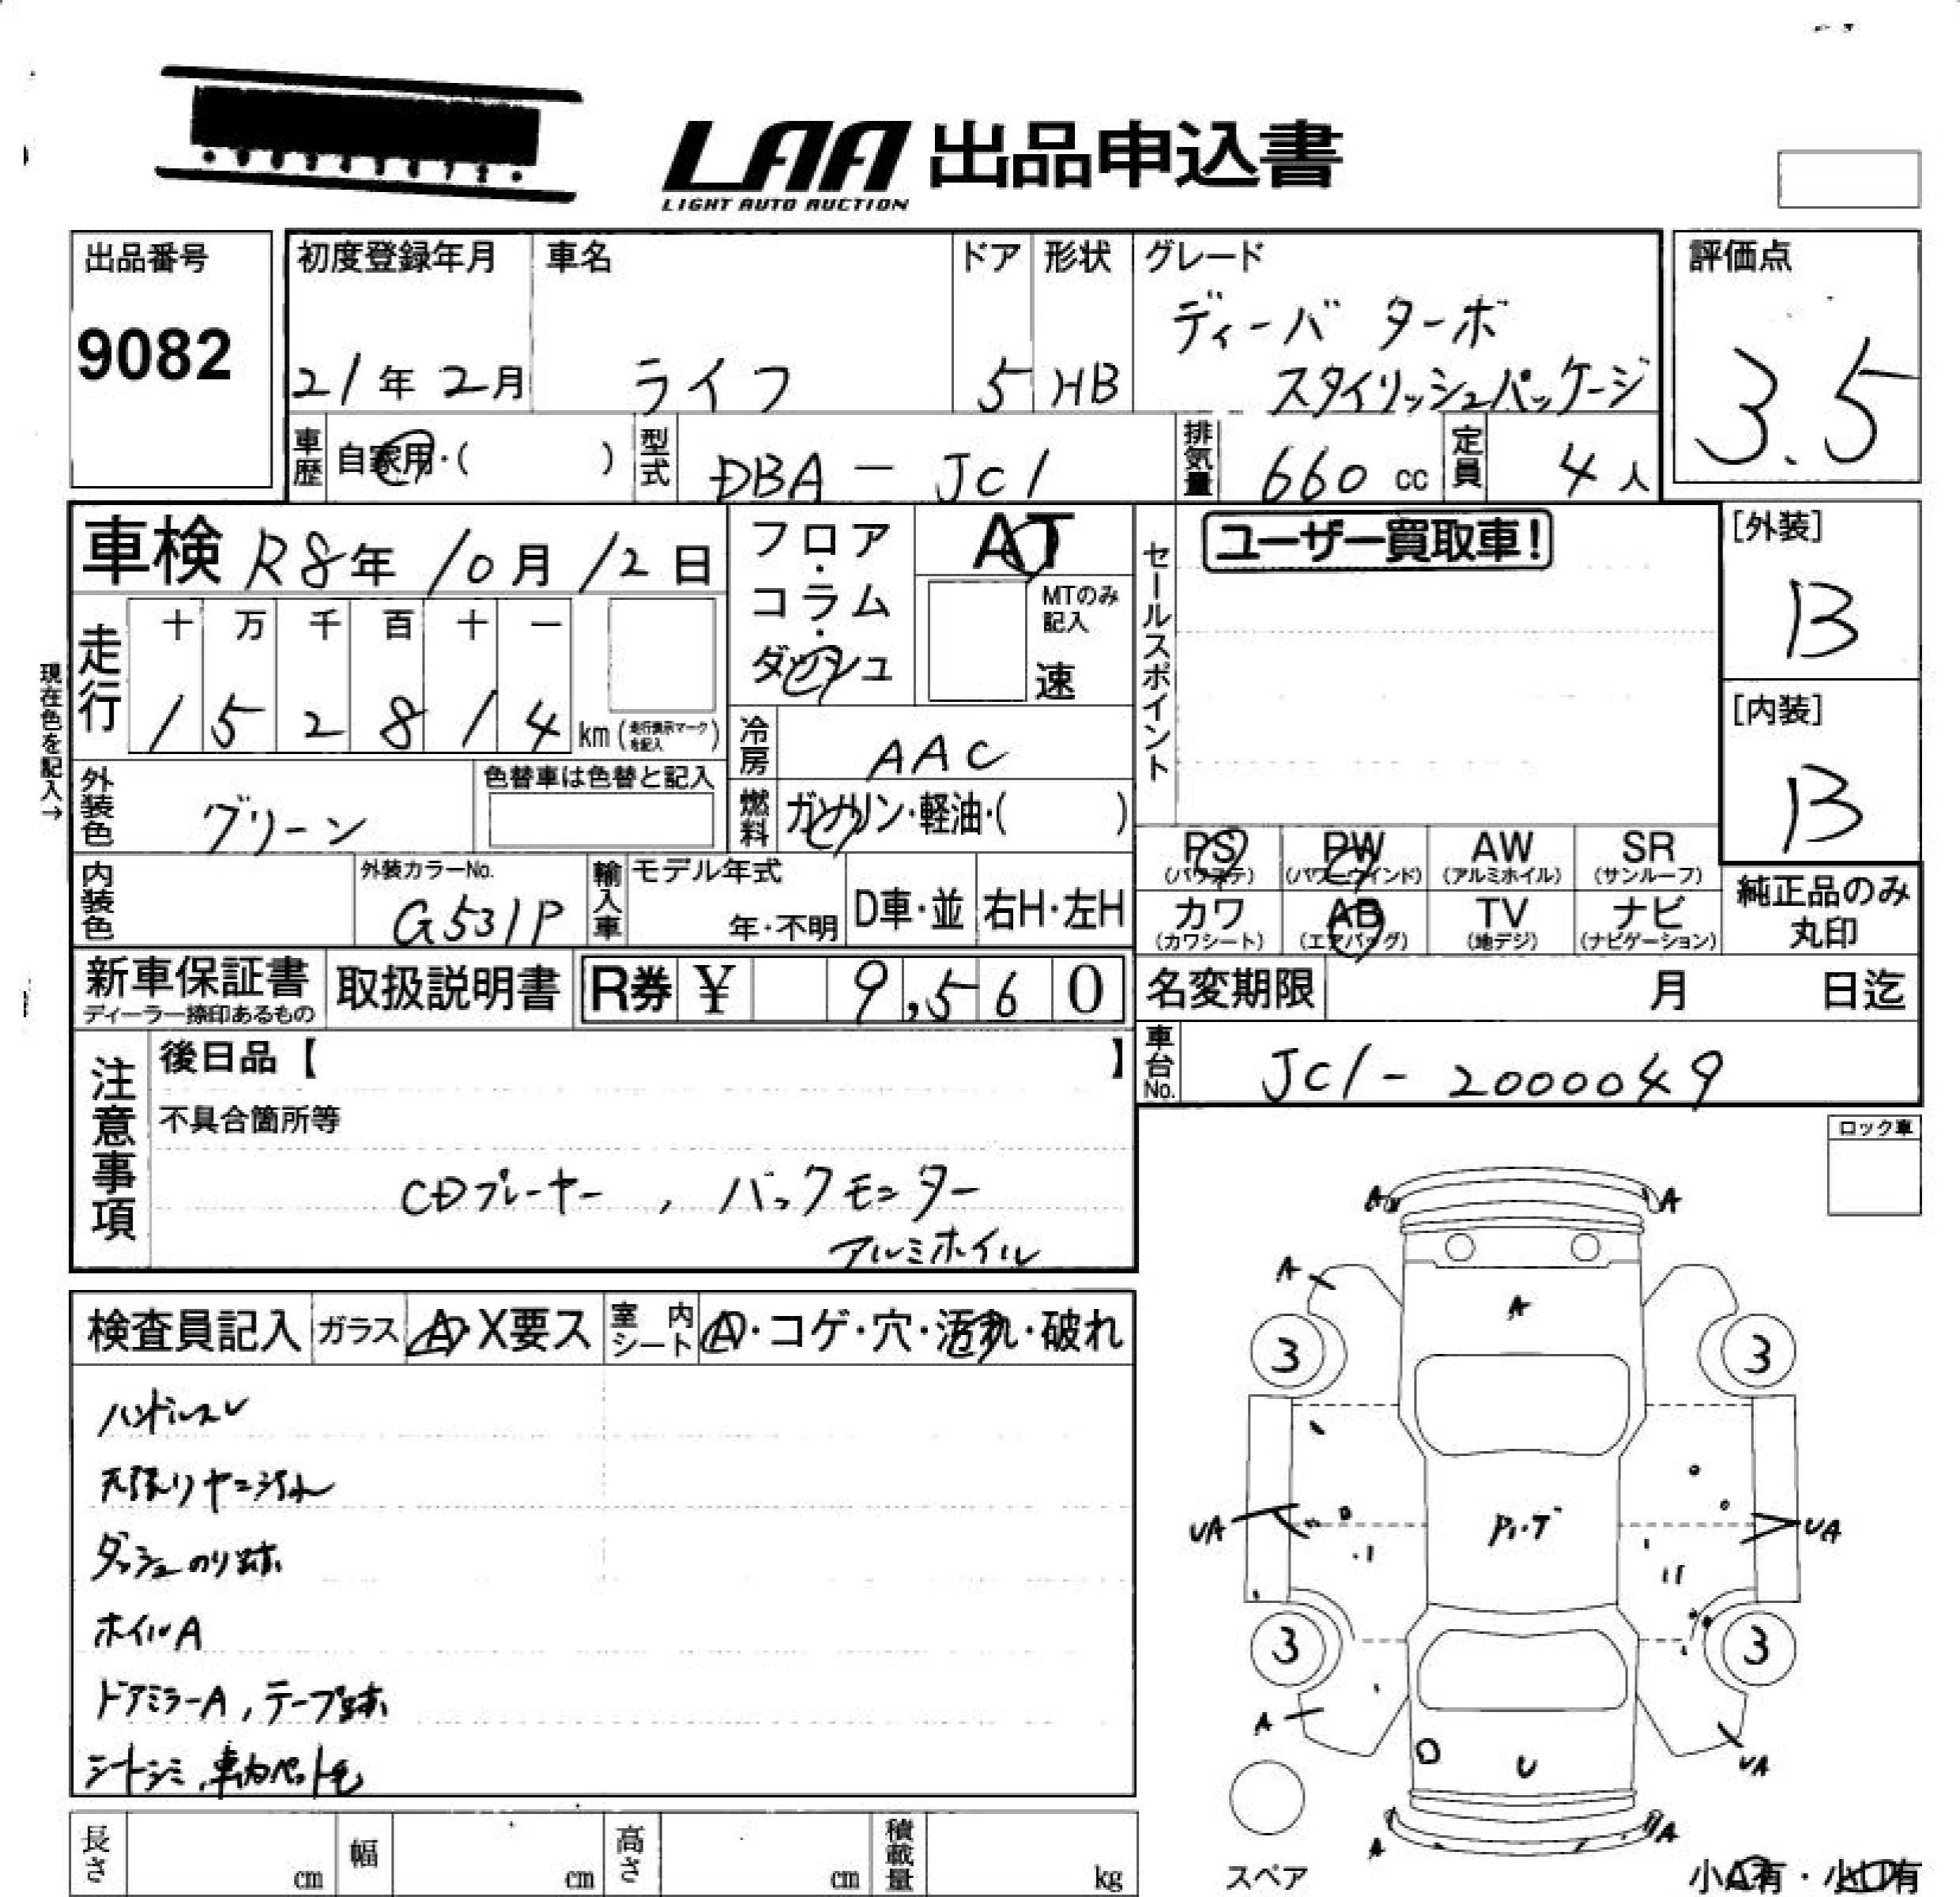 LAA 出品申込書
LIGHT AUTO AUCTION
出品番号
9082
初度登録年月
21年2月
車名
ライフ
ドア
5
形状
HB
グレード
ディーバ ターボ
スタイリッシュパッケージ
評価点
3.5
車歴
自家用・( )
型式
DBA-JC1
排気量
660 cc
定員
4人
車検 R8年10月12日
フロア・コラム・ダッシュ
AT
MTのみ記入
速
セールスポイント
ユーザー買取車!
[外装]
B
[内装]
B
現在色を記入→
走行
十 万 千 百 十 一
1 5 2 8 1 4 km (走行表示マークを記入)
冷房
AAC
外装色
グリーン
色替車は色替と記入
燃料
ガソリン・軽油・( )
PS
(パワステ)
PW
(パワーウインド)
AW
(アルミホイル)
SR
(サンルーフ)
カワ
(カワシート)
AB
(エアバッグ)
TV
(地デジ)
ナビ
(ナビゲーション)
純正品のみ
丸印
内装色
外装カラーNo.
G531P
輸入車
モデル年式
年・不明
D車・並
右H・左H
新車保証書
ディーラー捺印あるもの
取扱説明書
R券 ¥ 9,560
名変期限 月 日迄
車台No.
JC1-2000049
注意事項
後日品【 】
不具合箇所等
CDプレーヤー, バックモニター
アルミホイル
ロック車
検査員記入
ガラス
A・X要ス
室内シート
A・コゲ・穴・汚れ・破れ
ハンドルスレ
天張りヤニ汚れ
ダッシュのり跡
ホイルA
ドアミラーA, テープ跡
シートシミ, 車内ペット毛
A A
A
A
3 3
UA UA
3 3
A
UA
U
A A
スペア
小A有・小U有
長さ cm
幅 cm
高さ cm
積載量 kg